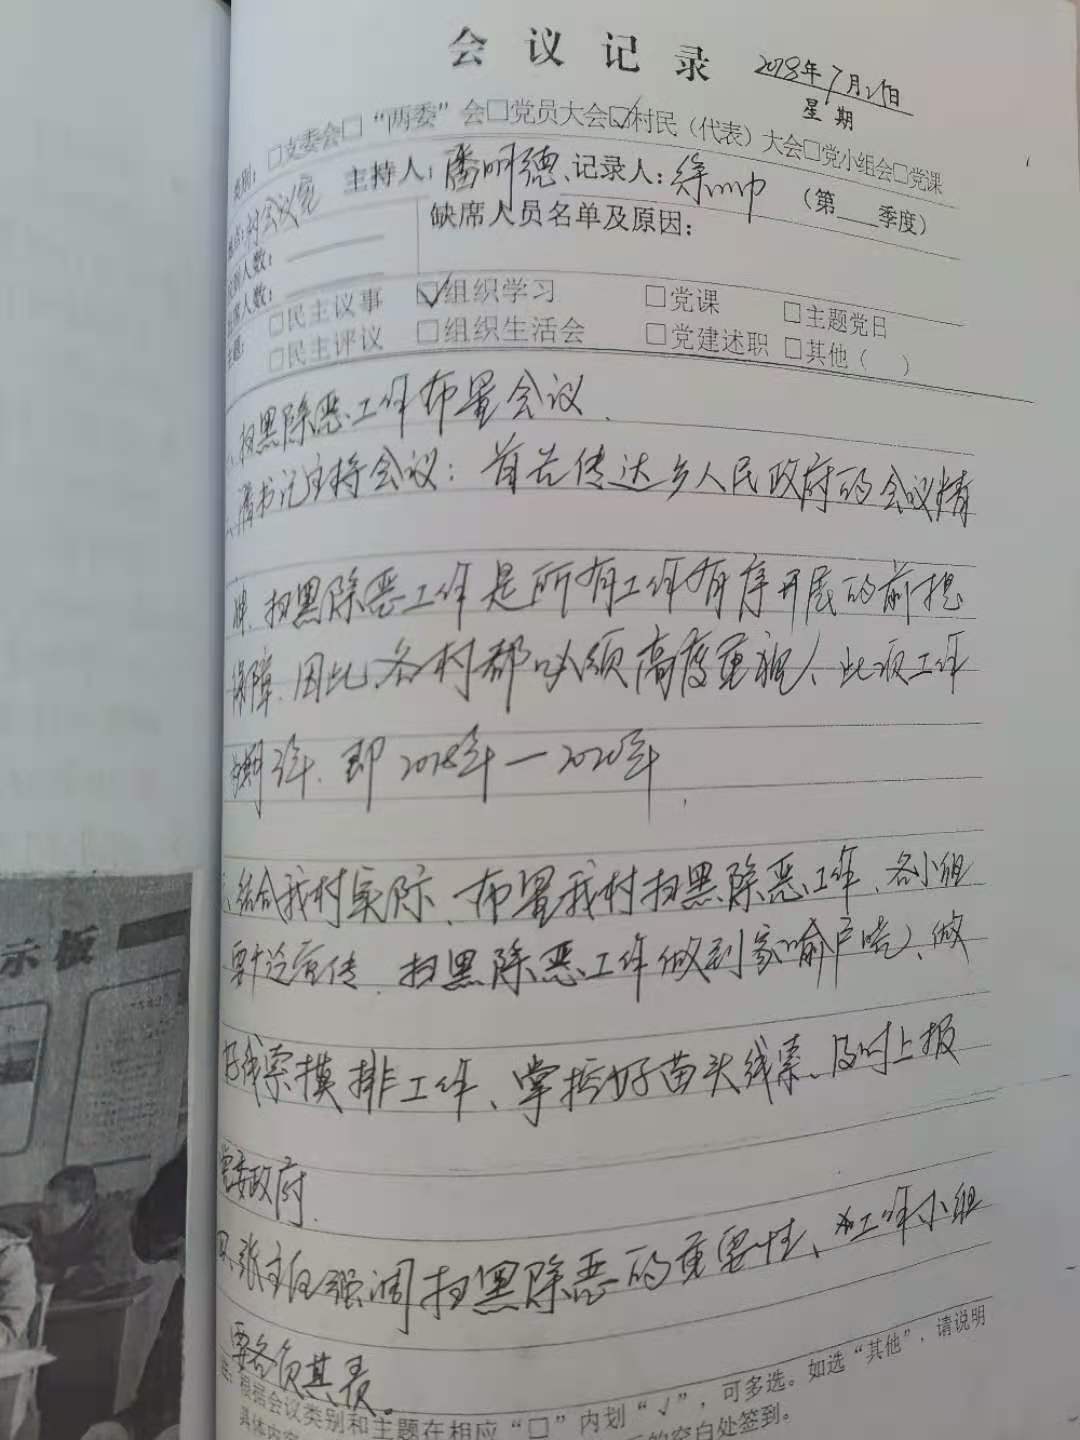 会议记录
2018年7月21日
星期
类别：□支委会□“两委”会□党员大会☑村民（代表）大会□党小组会□党课
地点：村会议室 主持人：潘明德 记录人：徐 （第 季度）
人数：
缺席人员名单及原因：
人数：
主题：□民主议事 ☑组织学习 □党课 □主题党日
□民主评议 □组织生活会 □党建述职 □其他（ ）
一、扫黑除恶工作布置会议
潘书记主持会议：首先传达乡人民政府的会议精
神、扫黑除恶工作是所有工作有序开展的前提
保障、因此各村都必须高度重视、此项工作
为期3年、即2018年—2020年
三、结合我村实际、布置我村扫黑除恶工作、各小组
要广泛宣传、扫黑除恶工作做到家喻户晓、做
好线索摸排工作、掌握好苗头线索、及时上报
党委政府
四、张主任强调扫黑除恶的重要性、工作小组
要各负其责。
注：根据会议类别和主题在相应“□”内划“√”，可多选。如选“其他”，请说明
具体内容 的空白处签到。
示板